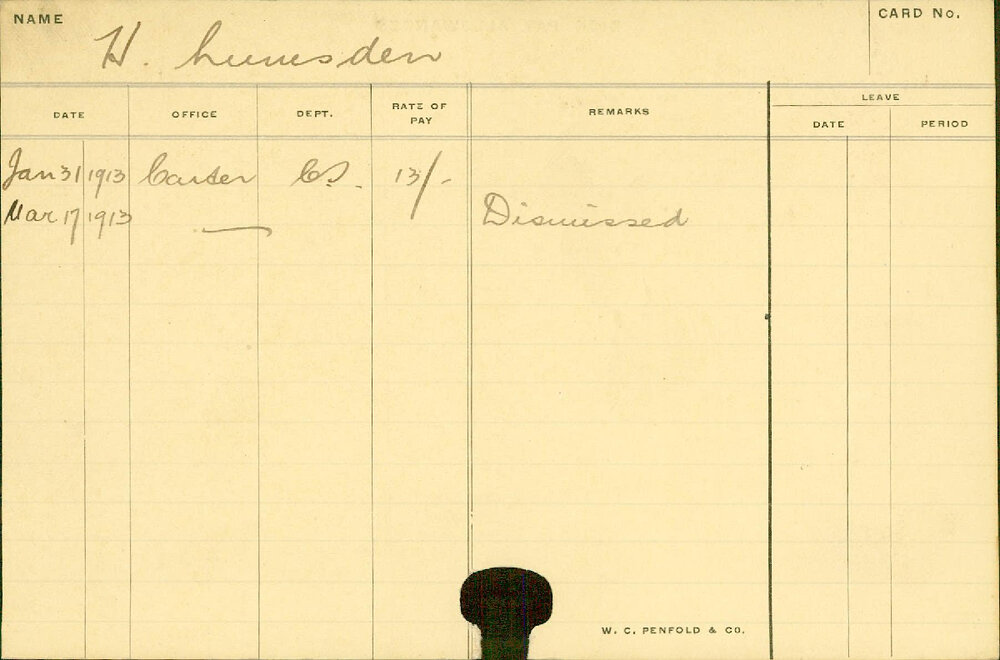 NAME
CARD No.
H. Lumsden
DATE OFFICE DEPT. RATE OF PAY REMARKS LEAVE
DATE PERIOD
Jan 31 1913 Carter CS. 13/-
Mar 17 1913 — Dismissed
W. C. PENFOLD & CO.